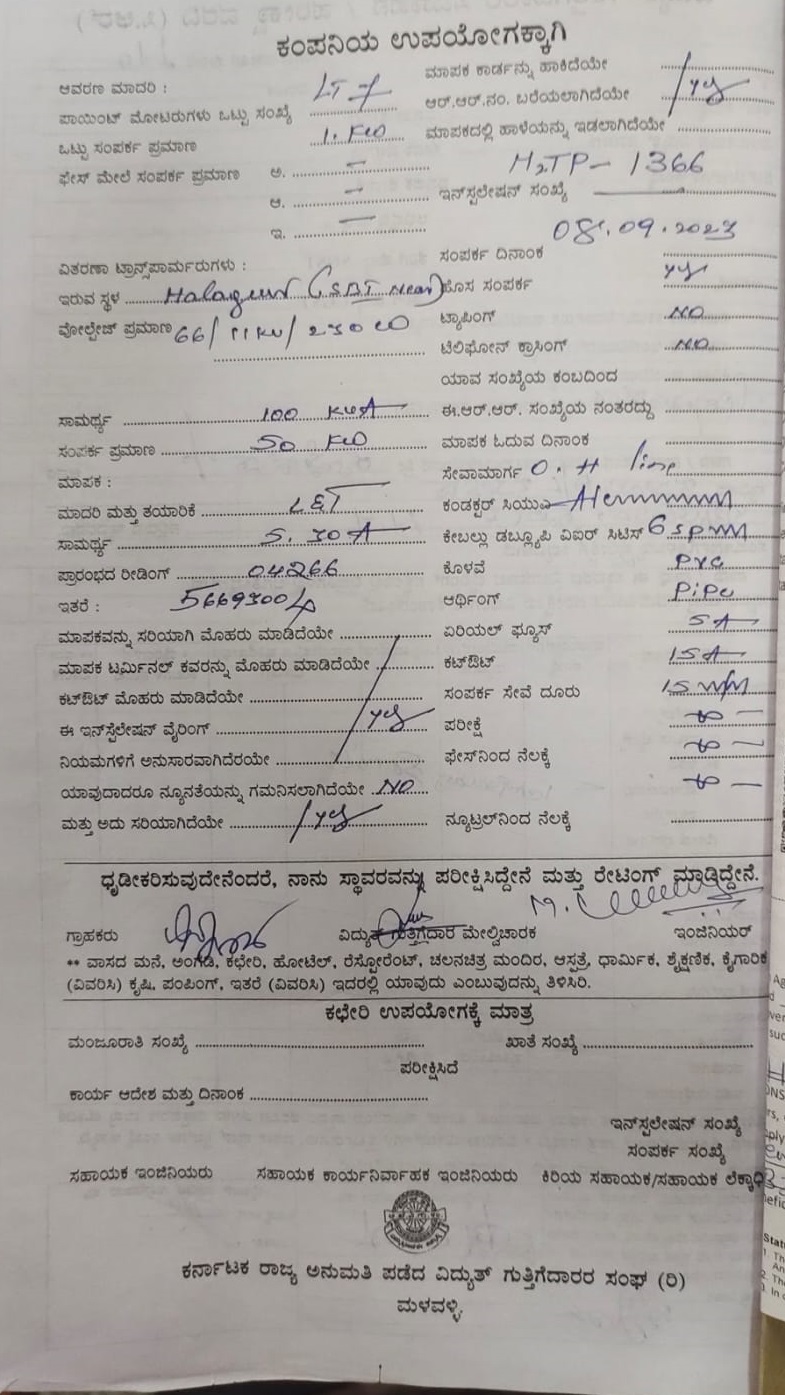 ಕಂಪನಿಯ ಉಪಯೋಗಕ್ಕಾಗಿ
ಆವರಣ ಮಾದರಿ : LT 7
ಮಾಪಕ ಕಾರ್ಡನ್ನು ಹಾಕಿದೆಯೇ
ಪಾಯಿಂಟ್ ಮೋಟರುಗಳು ಒಟ್ಟು ಸಂಖ್ಯೆ
ಆರ್.ಆರ್.ನಂ. ಬರೆಯಲಾಗಿದೆಯೇ yes
ಒಟ್ಟು ಸಂಪರ್ಕ ಪ್ರಮಾಣ
ಮಾಪಕದಲ್ಲಿ ಹಾಳೆಯನ್ನು ಇಡಲಾಗಿದೆಯೇ
ಫೇಸ್ ಮೇಲೆ ಸಂಪರ್ಕ ಪ್ರಮಾಣ ಅ. –
ಆ. –
ಇ. –
ಇನ್‌ಸ್ಟಲೇಷನ್ ಸಂಖ್ಯೆ – 1366
ಸಂಪರ್ಕ ದಿನಾಂಕ 08.09.2023
ವಿತರಣಾ ಟ್ರಾನ್ಸ್‌ಪಾರ್ಮರುಗಳು :
ಇರುವ ಸ್ಥಳ
ಹೊಸ ಸಂಪರ್ಕ yes
ವೋಲ್ಟೇಜ್ ಪ್ರಮಾಣ 66/11KV/
ಟ್ಯಾಪಿಂಗ್ NO
ಟೆಲಿಫೋನ್ ಕ್ರಾಸಿಂಗ್ NO
ಯಾವ ಸಂಖ್ಯೆಯ ಕಂಬದಿಂದ
ಸಾಮರ್ಥ್ಯ 100 KVA
ಈ.ಆರ್.ಆರ್. ಸಂಖ್ಯೆಯ ನಂತರದ್ದು
ಸಂಪರ್ಕ ಪ್ರಮಾಣ 50
ಮಾಪಕ ಓದುವ ದಿನಾಂಕ
ಮಾಪಕ :
ಸೇವಾಮಾರ್ಗ O.H line
ಮಾದರಿ ಮತ್ತು ತಯಾರಿಕೆ L&T
ಕಂಡಕ್ಟರ್ ಸಿಯುಎ
ಸಾಮರ್ಥ್ಯ 5.30A
ಕೇಬಲ್ಲು ಡಬ್ಲ್ಯೂಪಿ ವಿಐರ್ ಸಿಟಿಸ್
ಪ್ರಾರಂಭದ ರೀಡಿಂಗ್ 04266
ಕೊಳವೆ PVC
ಇತರೆ : 56693004
ಆರ್ಥಿಂಗ್ Pipe
ಮಾಪಕವನ್ನು ಸರಿಯಾಗಿ ಮೊಹರು ಮಾಡಿದೆಯೇ
ಏರಿಯಲ್ ಫ್ಯೂಸ್ 5A
ಮಾಪಕ ಟರ್ಮಿನಲ್ ಕವರನ್ನು ಮೊಹರು ಮಾಡಿದೆಯೇ
ಕಟ್‌ಔಟ್ 15A
ಕಟ್‌ಔಟ್ ಮೊಹರು ಮಾಡಿದೆಯೇ
ಸಂಪರ್ಕ ಸೇವೆ ದೂರು 15
ಈ ಇನ್‌ಸ್ಟಲೇಷನ್ ವೈರಿಂಗ್ yes
ಪರೀಕ್ಷೆ
ನಿಯಮಗಳಿಗೆ ಅನುಸಾರವಾಗಿದೆರಯೇ
ಫೇಸ್‌ನಿಂದ ನೆಲಕ್ಕೆ
ಯಾವುದಾದರೂ ನ್ಯೂನತೆಯನ್ನು ಗಮನಿಸಲಾಗಿದೆಯೇ NO
ಮತ್ತು ಅದು ಸರಿಯಾಗಿದೆಯೇ yes
ನ್ಯೂಟ್ರಲ್‌ನಿಂದ ನೆಲಕ್ಕೆ
ಧೃಡೀಕರಿಸುವುದೇನೆಂದರೆ, ನಾನು ಸ್ಥಾವರವನ್ನು ಪರೀಕ್ಷಿಸಿದ್ದೇನೆ ಮತ್ತು ರೇಟಿಂಗ್ ಮಾಡಿದ್ದೇನೆ.
ಗ್ರಾಹಕರು ವಿದ್ಯುತ್ ಗುತ್ತಿಗೆದಾರ ಮೇಲ್ವಿಚಾರಕ ಇಂಜಿನಿಯರ್
** ವಾಸದ ಮನೆ, ಅಂಗಡಿ, ಕಛೇರಿ, ಹೋಟೆಲ್, ರೆಸ್ಟೋರೆಂಟ್, ಚಲನಚಿತ್ರ ಮಂದಿರ, ಆಸ್ಪತ್ರೆ, ಧಾರ್ಮಿಕ, ಶೈಕ್ಷಣಿಕ, ಕೈಗಾರಿಕೆ
(ವಿವರಿಸಿ) ಕೃಷಿ, ಪಂಪಿಂಗ್, ಇತರೆ (ವಿವರಿಸಿ) ಇದರಲ್ಲಿ ಯಾವುದು ಎಂಬುವುದನ್ನು ತಿಳಿಸಿರಿ.
ಕಛೇರಿ ಉಪಯೋಗಕ್ಕೆ ಮಾತ್ರ
ಮಂಜೂರಾತಿ ಸಂಖ್ಯೆ ಖಾತೆ ಸಂಖ್ಯೆ
ಪರೀಕ್ಷಿಸಿದೆ
ಕಾರ್ಯ ಆದೇಶ ಮತ್ತು ದಿನಾಂಕ
ಇನ್‌ಸ್ಟಲೇಷನ್ ಸಂಖ್ಯೆ
ಸಂಪರ್ಕ ಸಂಖ್ಯೆ
ಸಹಾಯಕ ಇಂಜಿನಿಯರು ಸಹಾಯಕ ಕಾರ್ಯನಿರ್ವಾಹಕ ಇಂಜಿನಿಯರು ಕಿರಿಯ ಸಹಾಯಕ/ಸಹಾಯಕ
ಕರ್ನಾಟಕ ರಾಜ್ಯ ಅನುಮತಿ ಪಡೆದ ವಿದ್ಯುತ್ ಗುತ್ತಿಗೆದಾರರ ಸಂಘ (ರಿ)
ಮಳವಳ್ಳಿ.